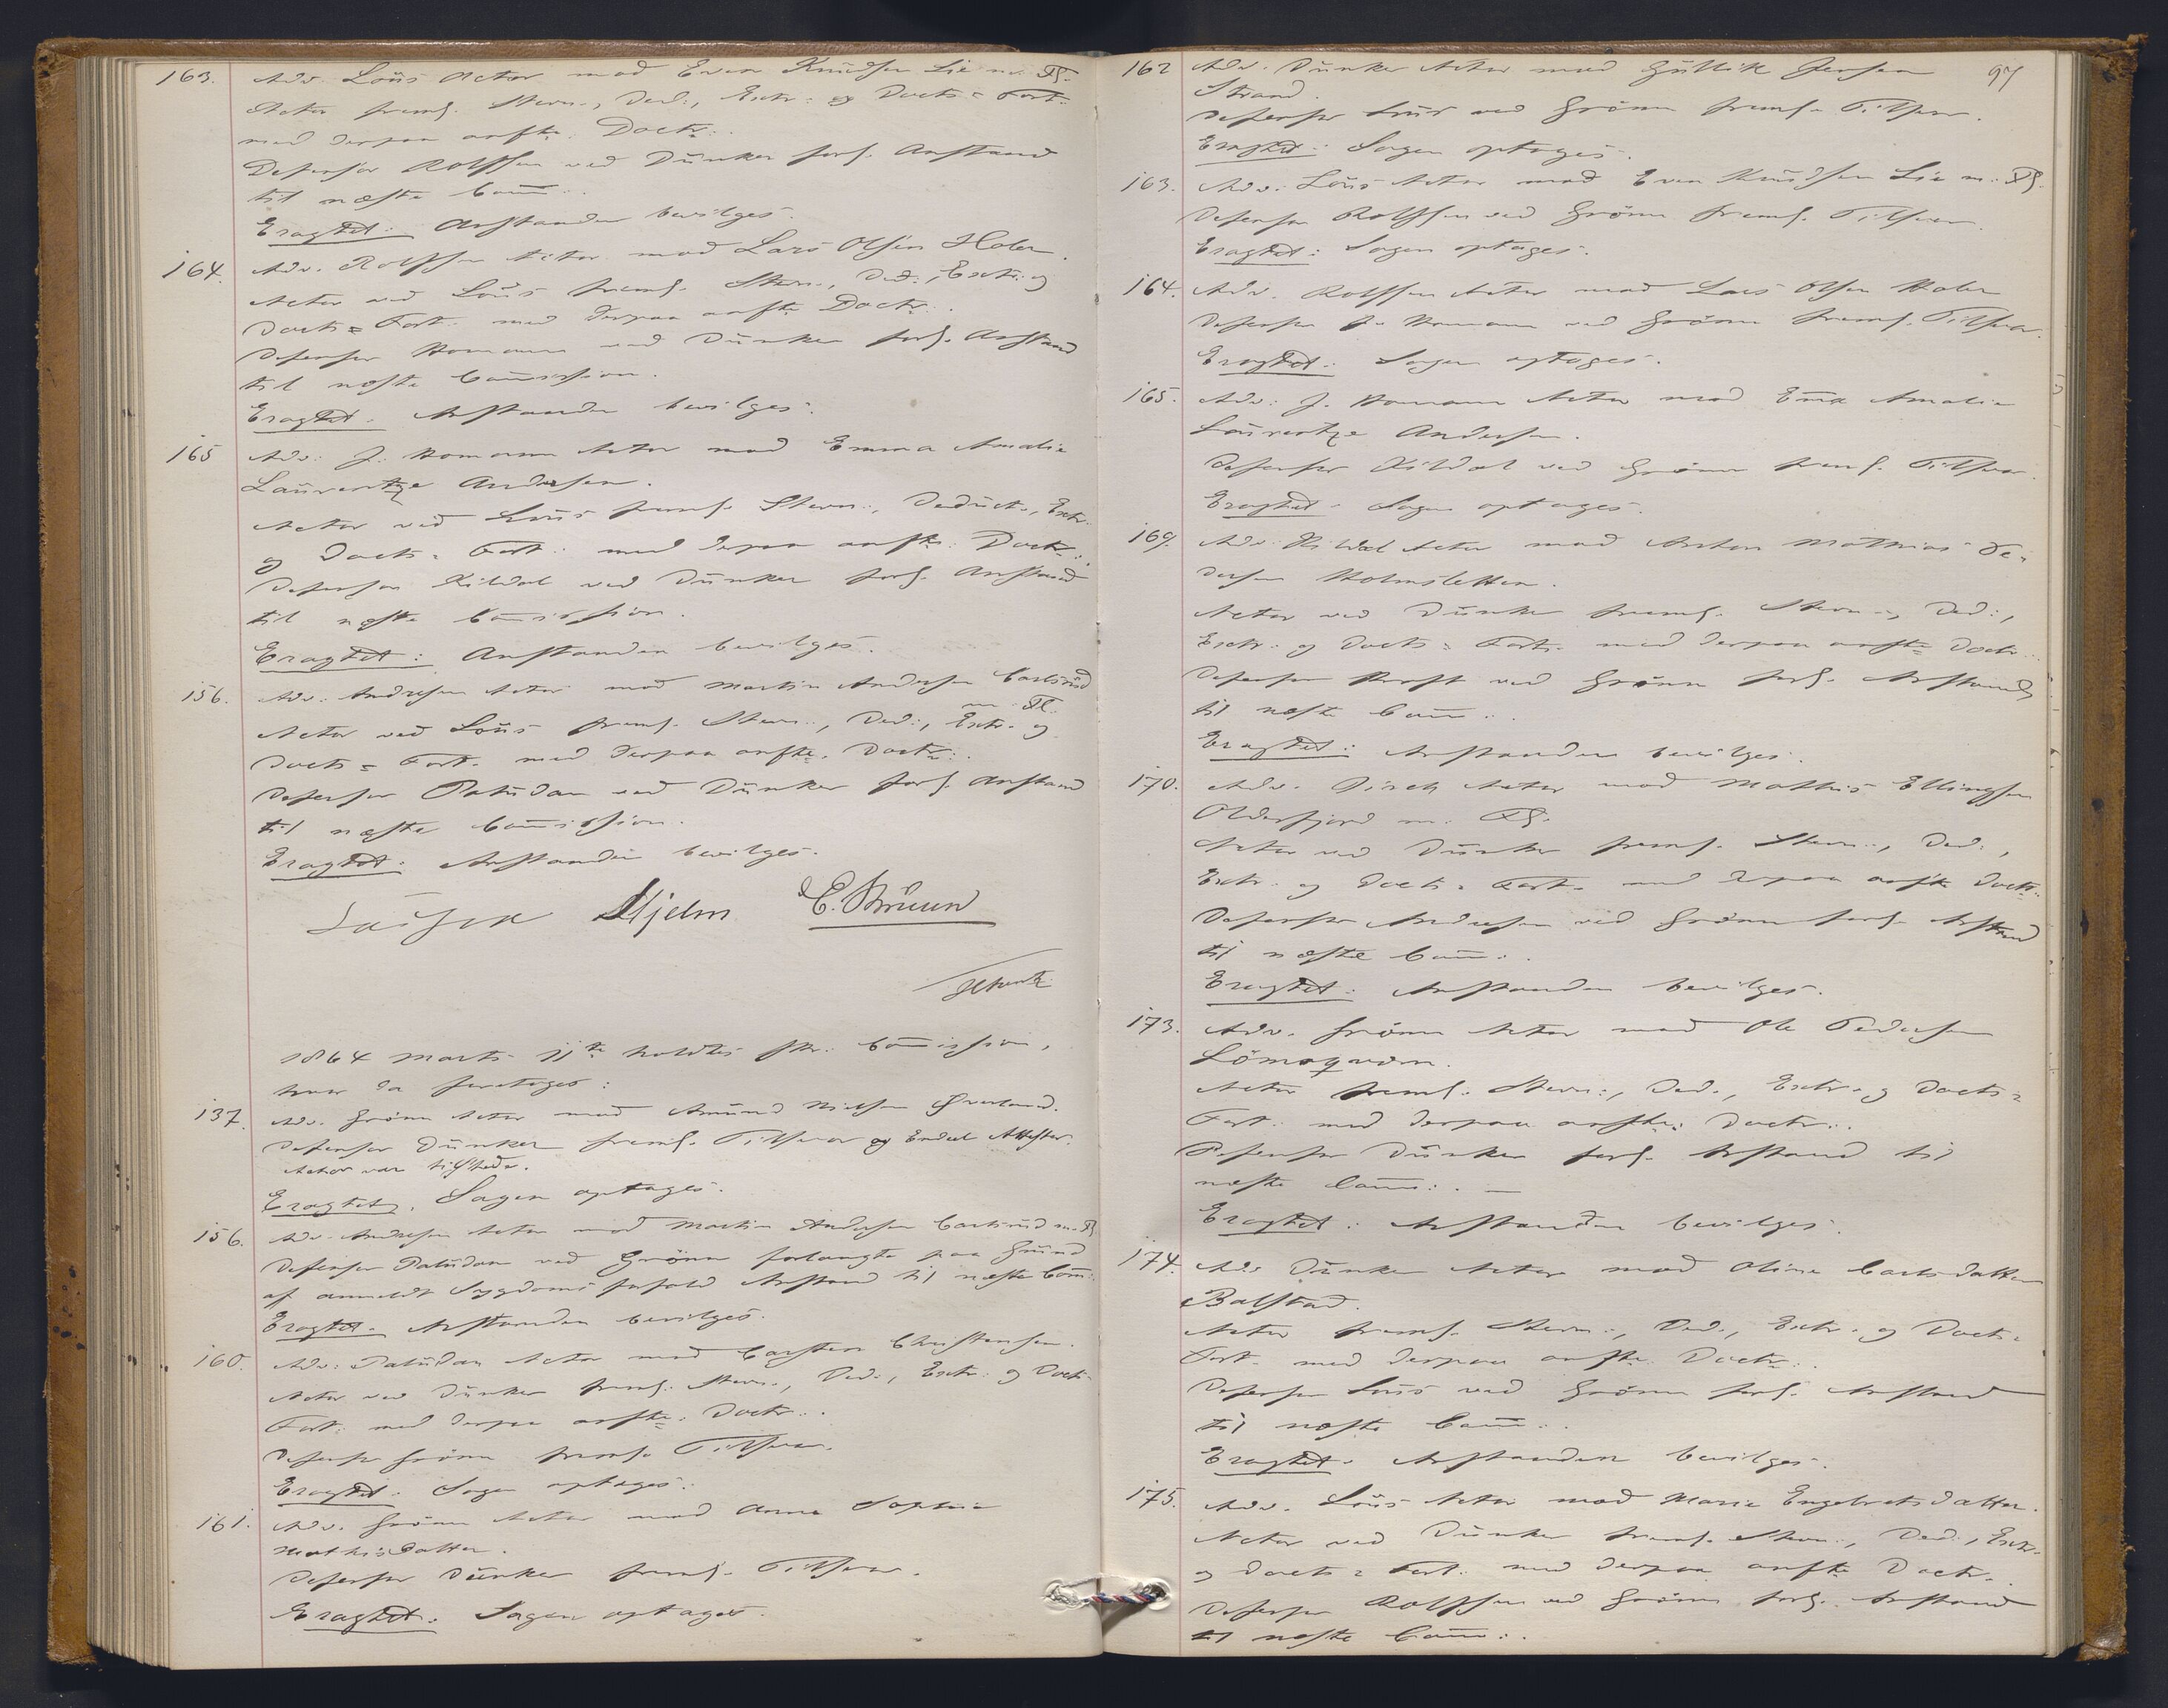 163. Adv. Löüs Actor mod Even Knudsen Lie m. Fl.
Actor freml. Stevn:, Ded:, Extr: og Docts= Fort.
med derpaa anførte Doctr:.
Defensor Rolffsen ved Dunker forl. Anstand
til næste Comm:.
Eragtet: Anstanden bevilges.
164. Adv. Rolffsen Actor mod Lars Olsen Holen.
Actor ved Löüs freml. Stevn:, Ded:, Extr: og
Docts= Fort. med derpaa anførte Doctr:.
Defensor Homann ved Dunker forl. Anstand
til næste Commission.
Eragtet: Anstanden bevilges.
165 Adv: J. Homann Actor mod Emma Amalie
Laurentze Andersen.
Actor ved Löüs freml. Stevn:, Deduct:, Extr:
og Docts= Fort: med derpaa anførte Doctr:.
Defensor Kildal ved Dunker forl. Anstand
til næste Commission.
Eragtet: Anstanden bevilges.
156. Adv: Andresen Actor mod Martin Andersen Carlsrud
m. Fl.
Actor ved Löüs freml. Stevn:, Ded:, Extr. og
Docts= Fort. med derpaa anførte Doctr:.
Defensor Paludan ved Dunker forl. Anstand
til næste Commission.
Eragtet: Anstanden bevilges.
Lasson Hjelm E. Bruun
1864 Marts 11te holdtes Commission,
hvor da foretoges:
137. Adv. Grönn Actor mod Amund Nielsen Överland.
Defensor Dunker freml. Tilsvar og Attester.
Actor var tilstede.
Eragtet. Sagen optages.
156. Adv. Andresen Actor mod Martin Andersen Carlsrud m. Fl.
Defensor Paludan ved Grönn forlangte paa Grund
af anmeldt Sygdoms Forfald Anstand til næste Comm:
Eragtet. Anstanden bevilges.
160. Adv: Paludan Actor mod Carsten Christensen.
Actor ved Dunker freml. Stevn:, Ded:, Extr: og Docts=
Fort: med derpaa anførte Doctr:.
Defensor Grönn freml. Tilsvar.
Eragtet. Sagen optages.
161. Adv. Grönn Actor mod Anne Sophie
Mathisdatter.
Defensor Dunker freml. Tilsvar.
Eragtet: Sagen optages.
97
162 Adv. Dunker Actor mod Gullik Jensen
Strand.
Defensor Löüs ved Grönn freml. Tilsvar.
Eragtet: Sagen optages.
163. Adv: Löüs Actor mod Even Knudsen Lie m: Fl.
Defensor Rolffsen ved Grönn freml. Tilsvar.
Eragtet: Sagen optages.
164. Adv. Rolffsen Actor mod Lars Olsen Holen
Defensor J. Homann ved Grönn freml. Tilsvar.
Eragtet: Sagen optages.
165. Adv: J. Homann Actor mod Emma Amalie
Laurentze Andersen.
Defensor Kildal ved Grönn freml. Tilsvar.
Eragtet. Sagen optages.
169. Adv. Kildal Actor mod Anton Mathias Pe-
dersen Holmsletten.
Actor ved Dunker freml. Stevn:, Ded:,
Extr: og Docts= Fort. med derpaa anførte Doctr:.
Defensor Kraft ved Grönn forl. Anstand
til næste Comm:.
Eragtet: Anstanden bevilges.
170. Adv. Actor mod Mathis Ellingsen
Olderfjord m: Fl.
Actor ved Dunker freml. Stevn:, Ded:,
Extr. og Docts= Fort. med derpaa anførte Doctr:.
Defensor Andresen ved Grönn forl. Anstand
til næste Comm:.
Eragtet: Anstanden bevilges.
173. Adv. Grönn Actor mod Ole Pedersen
Lömoqværn.
Actor freml. Stevn:, Ded:, Extr. og Docts=
Fort. med derpaa anførte Doctr:.
Defensor Dunker forl. Anstand til
næste Comm:.
Eragtet: Anstanden bevilges.
174. Adv Dunker Actor mod Oline Carlsdatter
Balstad.
Actor freml. Stevn:, Ded:, Extr. og Docts=
Fort. med derpaa anførte Doctr:.
Defensor Löüs ved Grönn forl. Anstand
til næste Comm:.
Eragtet. Anstanden bevilges.
175. Adv. Löüs Actor mod Marie Engebretsdatter.
Actor ved Dunker freml. Stevn:, Ded:, Extr.
og Docts= Fort. med derpaa anførte Doctr.
Defensor Rolffsen ved Grönn forl. Anstand
til næste Comm:.